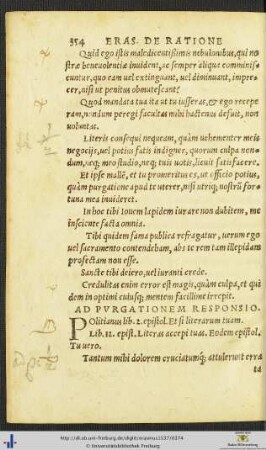 354 ERAS. DE RATIONE
Quid ego istis maledicentissimis nebulonibus, qui no
stræ beneuolentiæ inuident, ac semper aliquid comminis
cuntur, quo eam uel extinguant, uel diminuant, impre
cer, nisi ut penitus obmutescant?
Quod mandata tua ita ut tu iusseras, & ego recepe
ram, nondum peregi facultas mihi hactenus defuit, non
uoluntas.
Literis consequi nequeam, quàm uehementer meis
negocijs, uel potius fatis indigner, quorum culpa nendum,
neq; meo studio, neq; tuis uotis licuit satisfacere.
Et ipse mallẽ, et tu promeritus es, ut officio potius,
quàm purgatione apud te uterer, nisi utriq; nostrũ for
tuna mea inuideret.
In hoc tibi Iouem lapidem iurare non dubitem, me
insciente facta omnia.
Tibi quidem fama publica refragatur, uerum ego
uel sacramento contendebam, abs te rem tam illepidam
profectam non esse.
Sancte tibi deiero, uel iuranti crede.
Credulitas enim error est magis, quàm culpa, et qui
dem in optimi cuiusq; mentem facillime irrepit.
AD PVRGATIONEM RESPONSIO.
Politianus lib. 2. epistol. Et si literarum tuam.
Lib. 11. epist. Literas accepi tuas. Eodem epistol.
Tu uero.
Tantum mihi dolorem cruciatumq; attulerunt erra
ta
http://dl.ub.uni-freiburg.de/diglit/erasmus1527/0374
© Universitätsbibliothek Freiburg